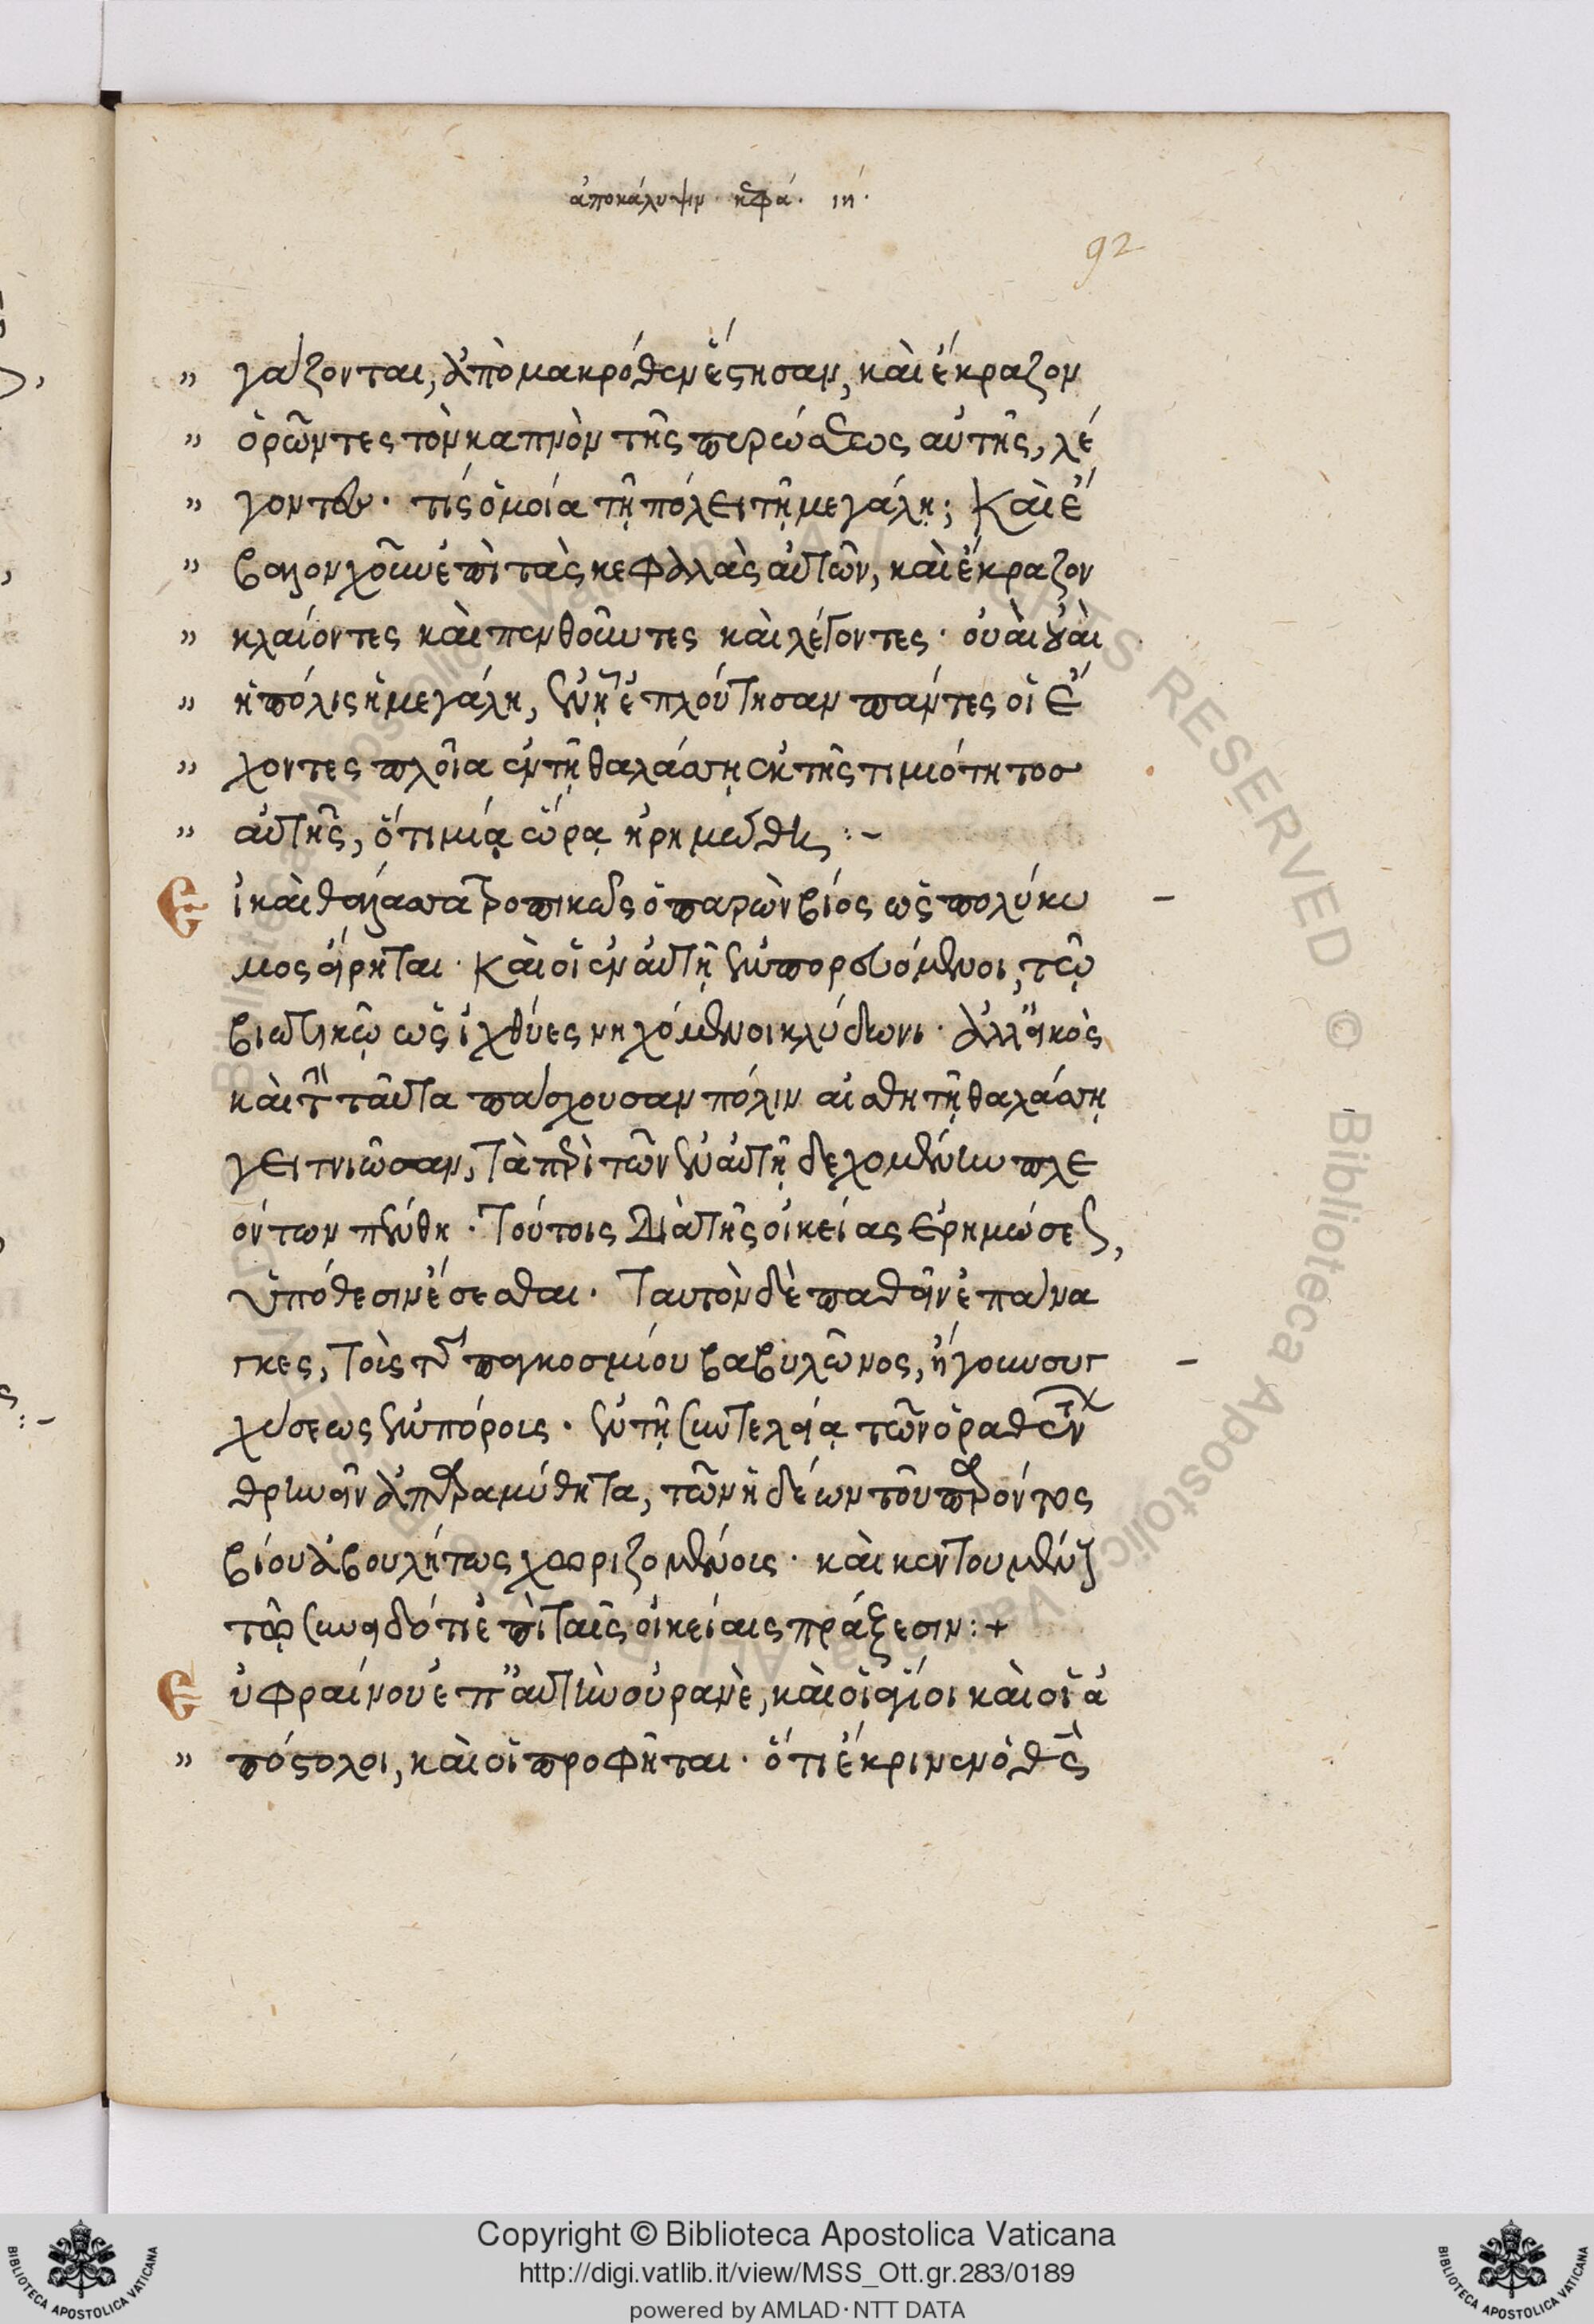 ἀποκάλυψιν κεφά. ιη΄.
92
" γάζονται, ἀπὸ μακρόθεν ἔστησαν, καὶ ἔκραζον
" ὁρῶντες τὸν καπνὸν τῆς πυρώσεως αὐτῆς, λέ
" γοντες· τίς ὁμοία τῇ πόλει τῇ μεγάλῃ; Καὶ ἔ
" βαλον χοῦν ἐπὶ τὰς κεφαλὰς αὐτῶν, καὶ ἔκραζον
" κλαίοντες καὶ πενθοῦντες καὶ λέγοντες· οὐαὶ οὐαὶ
" ἡ πόλις ἡ μεγάλη, ἐν ᾗ ἐπλούτησαν πάντες οἱ ἔ
" χοντες πλοῖα ἐν τῇ θαλάσσῃ ἐκ τῆς τιμιότητος
" αὐτῆς, ὅτι μιᾷ ὥρᾳ ἠρημώθη :-
Εἰ καὶ θάλασσα τροπικῶς ὁ παρὼν βίος ὡς πολύκυ
μος εἴρηται· Καὶ οἱ ἐν αὐτῇ ἐμπορευόμενοι, τῷ
βιωτικῷ ὡς ἰχθύες νηχόμενοι κλύδωνι· ἀλλ' εἰκὸς
καὶ τὴν ταῦτα πάσχουσαν πόλιν αἰσθητῇ θαλάσσῃ
γειτνιῶσαν, τὰ περὶ τῶν ἐν αὐτῇ δεχομένην πλε
όντων πένθη· Τούτοις διὰ τῆς οἰκείας ἐρημώσεως,
ὑπόθεσιν ἔσεσθαι· Ταυτὸν δὲ παθεῖν ἐπάνα
γκες, τοῖς τῆς παγκοσμίου βαβυλῶνος, ἤγουν συγ
χύσεως ἐμπόροις· ἐν τῇ συντελείᾳ τῶν ὁραθέντων
θρηνεῖν ἀπαραμύθητα, τῶν ἡδέων τοῦ παρόντος
βίου ἀβουλήτως χωριζομένοις· καὶ κεντουμένοις
τῷ συνειδότι ἐπὶ ταῖς οἰκείαις πράξεσιν :+
Εὐφραίνου ἐπ' αὐτὴν οὐρανὲ, καὶ οἱ ἅγιοι καὶ οἱ ἀ
" πόστολοι, καὶ οἱ προφῆται· ὅτι ἔκρινεν ὁ θς
Copyright © Biblioteca Apostolica Vaticana
http://digi.vatlib.it/view/MSS_Ott.gr.283/0189
powered by AMLAD·NTT DATA